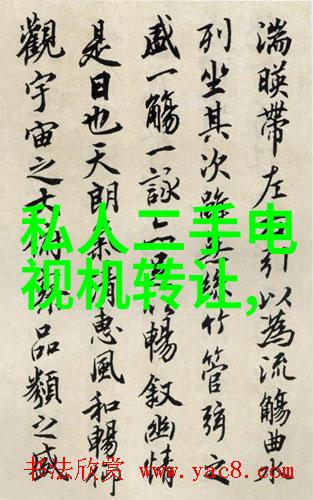 湍暎帶左引以為流觴曲
列坐其次雖無絲竹管弦之
盛一觴一詠亦暢敘幽情
是日也天朗惠風和暢仰
觀宇宙之品類之盛
私人二手电
视机转让,
书法欣赏 www.yac8.com